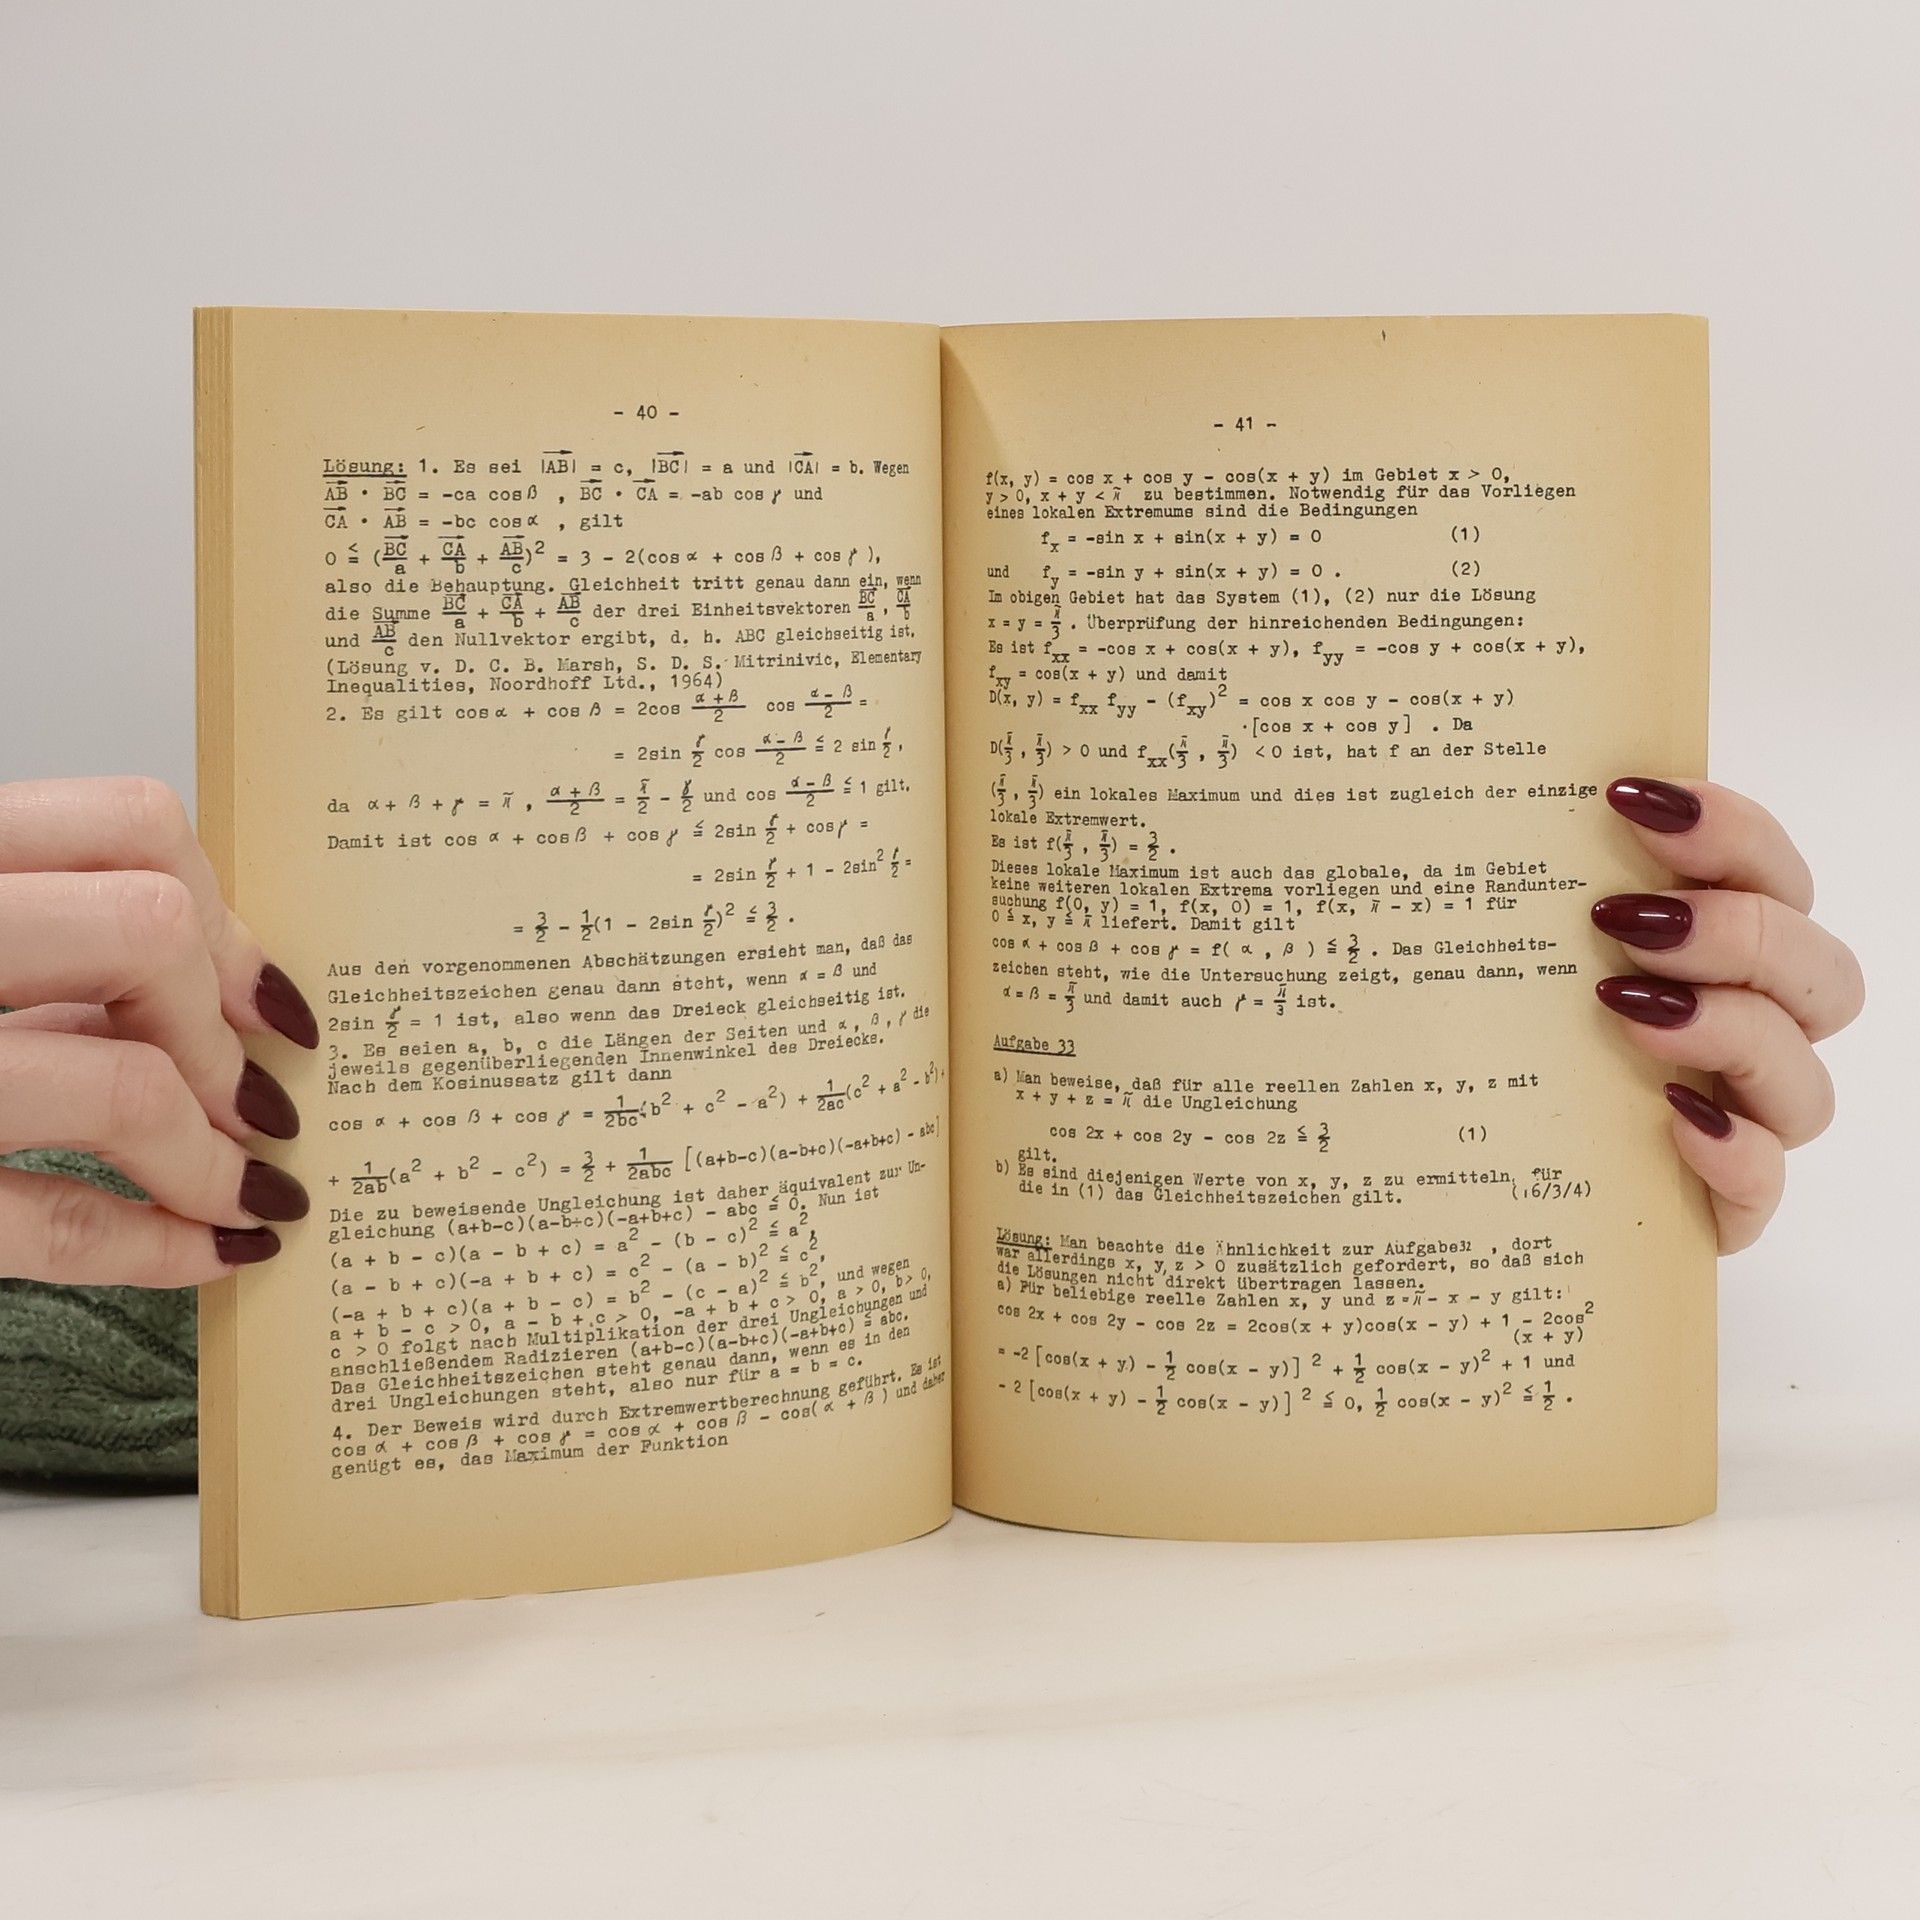 - 40 -
Lösung: 1. Es sei |AB| = c, |BC| = a und |CA| = b. Wegen
AB · BC = -ca cos β , BC · CA = -ab cos γ und
CA · AB = -bc cos α , gilt
0 ≦ (BC/a + CA/b + AB/c)² = 3 - 2(cos α + cos β + cos γ ),
also die Behauptung. Gleichheit tritt genau dann ein, wenn
die Summe BC/a + CA/b + AB/c der drei Einheitsvektoren BC/a , CA/b
und AB/c den Nullvektor ergibt, d. h. ABC gleichseitig ist.
(Lösung v. D. C. B. Marsh, S. D. S. Mitrinivic, Elementary
Inequalities, Noordhoff Ltd., 1964)
2. Es gilt cos α + cos β = 2cos (α + β)/2 cos (α - β)/2 =
= 2sin γ/2 cos (α - β)/2 ≦ 2 sin γ/2 ,
da α + β + γ = π , (α + β)/2 = π/2 - γ/2 und cos (α - β)/2 ≦ 1 gilt.
Damit ist cos α + cos β + cos γ ≦ 2sin γ/2 + cos γ =
= 2sin γ/2 + 1 - 2sin² γ/2 =
= 3/2 - 1/2(1 - 2sin γ/2)² ≦ 3/2 .
Aus den vorgenommenen Abschätzungen ersieht man, daß das
Gleichheitszeichen genau dann steht, wenn α = β und
2sin γ/2 = 1 ist, also wenn das Dreieck gleichseitig ist.
3. Es seien a, b, c die Längen der Seiten und α, β, γ die
jeweils gegenüberliegenden Innenwinkel des Dreiecks.
Nach dem Kosinussatz gilt dann
cos α + cos β + cos γ = 1/2bc (b² + c² - a²) + 1/2ac (c² + a² - b²) +
+ 1/2ab (a² + b² - c²) = 3/2 + 1/2abc [(a+b-c)(a-b+c)(-a+b+c) - abc]
Die zu beweisende Ungleichung ist daher äquivalent zur Un-
gleichung (a+b-c)(a-b+c)(-a+b+c) - abc ≦ 0. Nun ist
(a + b - c)(a - b + c) = a² - (b - c)² ≦ a²,
(a - b + c)(-a + b + c) = c² - (a - b)² ≦ c²,
(-a + b + c)(a + b - c) = b² - (c - a)² ≦ b², und wegen
a + b - c > 0, a - b + c > 0, -a + b + c > 0, a > 0, b > 0,
c > 0 folgt nach Multiplikation der drei Ungleichungen und
anschließendem Radizieren (a+b-c)(a-b+c)(-a+b+c) ≦ abc.
Das Gleichheitszeichen steht genau dann, wenn es in den
drei Ungleichungen steht, also nur für a = b = c.
4. Der Beweis wird durch Extremwertberechnung geführt. Es ist
cos α + cos β + cos γ = cos α + cos β - cos( α + β ) und daher
genügt es, das Maximum der Funktion
- 41 -
f(x, y) = cos x + cos y - cos(x + y) im Gebiet x > 0,
y > 0, x + y < π zu bestimmen. Notwendig für das Vorliegen
eines lokalen Extremums sind die Bedingungen
fx = -sin x + sin(x + y) = 0 (1)
und fy = -sin y + sin(x + y) = 0 . (2)
Im obigen Gebiet hat das System (1), (2) nur die Lösung
x = y = π/3 . Überprüfung der hinreichenden Bedingungen:
Es ist fxx = -cos x + cos(x + y), fyy = -cos y + cos(x + y),
fxy = cos(x + y) und damit
D(x, y) = fxx fyy - (fxy)² = cos x cos y - cos(x + y)
·[cos x + cos y] . Da
D(π/3 , π/3) > 0 und fxx(π/3 , π/3) < 0 ist, hat f an der Stelle
(π/3 , π/3) ein lokales Maximum und dies ist zugleich der einzige
lokale Extremwert.
Es ist f(π/3 , π/3) = 3/2 .
Dieses lokale Maximum ist auch das globale, da im Gebiet
keine weiteren lokalen Extrema vorliegen und eine Randunter-
suchung f(0, y) = 1, f(x, 0) = 1, f(x, π - x) = 1 für
0 ≦ x, y ≦ π liefert. Damit gilt
cos α + cos β + cos γ = f( α , β ) ≦ 3/2 . Das Gleichheits-
zeichen steht, wie die Untersuchung zeigt, genau dann, wenn
α = β = π/3 und damit auch γ = π/3 ist.
Aufgabe 33
a) Man beweise, daß für alle reellen Zahlen x, y, z mit
x + y + z = π die Ungleichung
cos 2x + cos 2y - cos 2z ≦ 3/2 (1)
gilt.
b) Es sind diejenigen Werte von x, y, z zu ermitteln, für
die in (1) das Gleichheitszeichen gilt. (16/3/4)
Lösung: Man beachte die Ähnlichkeit zur Aufgabe 32 , dort
war allerdings x, y, z > 0 zusätzlich gefordert, so daß sich
die Lösungen nicht direkt übertragen lassen.
a) Für beliebige reelle Zahlen x, y und z = π - x - y gilt:
cos 2x + cos 2y - cos 2z = 2cos(x + y)cos(x - y) + 1 - 2cos²
(x + y)
= -2 [cos(x + y) - 1/2 cos(x - y)] ² + 1/2 cos(x - y)² + 1 und
- 2 [cos(x + y) - 1/2 cos(x - y)] ² ≦ 0, 1/2 cos(x - y)² ≦ 1/2 .